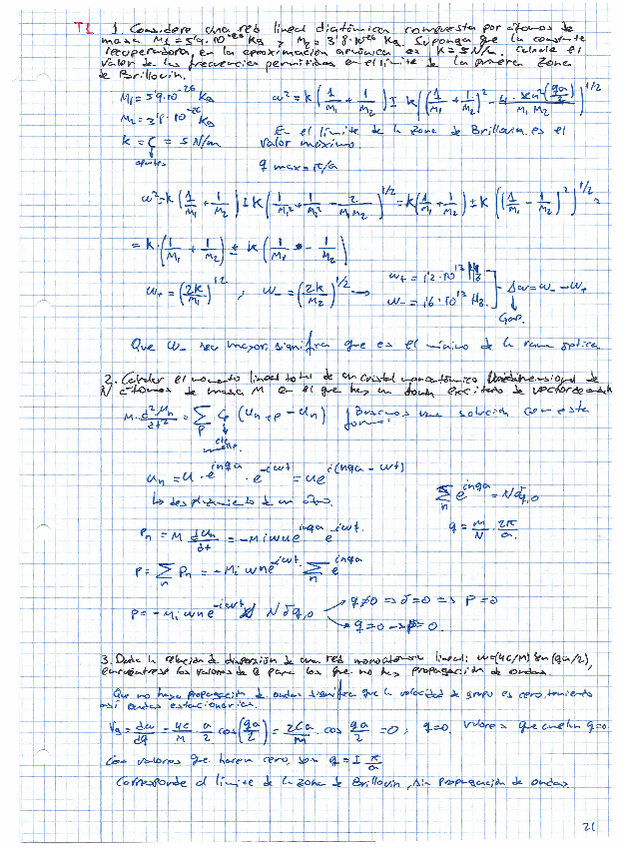 T1 1. Considere una red lineal diatómica compuesta por átomos de
masa M₁ = 5'9·10⁻²⁶ Kg y M₂ = 3'8·10⁻²⁶ Kg. Suponga que la constante
recuperadora en la aproximación armónica es K = 5 N/m. Calcule el
valor de las frecuencias permitidas en el límite de la primera zona
de Brillouin.
M₁ = 5'9·10⁻²⁶ Kg
ω² = k (1/M₁ + 1/M₂) ± k ((1/M₁ + 1/M₂)² - 4·sen²(qa/2)/(M₁ M₂))^1/2
M₂ = 3'8·10⁻²⁶ Kg
En el límite de la zona de Brillouin es el
k = C = 5 N/m
valor máximo.
q max = π/a
ω² = k (1/M₁ + 1/M₂) ± k (1/M₁² + 1/M₂² - 2/M₁M₂)^1/2 = k (1/M₁ + 1/M₂) ± k ((1/M₁ - 1/M₂)²)^1/2 =
= k·(1/M₁ + 1/M₂) ± k (1/M₁ - 1/M₂)
ω₊ = (2k/M₁)^1/2 ; ω₋ = (2k/M₂)^1/2 → ω₊ = 1'2·10¹³ Hz ω₋ = 1'6·10¹³ Hz. Δω = ω₋ - ω₊
Gap.
Que ω₋ sea mayor significa que es el mínimo de la rama óptica
2. Calcular el momento lineal total de un cristal monoatómico unidimensional de
N átomos de masa M en el que hay un fonón excitado de vector de onda
M·d²μn/dt² = Σp Cp (Un+p - Un) Buscamos una solución con esta
forma:
cte muelle.
un = u·e^inqa·e^-iωt = ue^i(nqa - ωt)
Σn e^inqa = Nδq,0
q = m/N · 2π/a.
Pn = M dun/dt = -Miωue^inqa e^-iωt.
P = Σn Pn = -Miωue^-iωt·Σn e^inqa
P = -Miωue^-iωt Nδq,0 q≠0 ⇒ δ=0 ⇒ P=0
q=0 → P=0.
3. Dada la relación de dispersión de una red monoatómica lineal: ω=(4C/M) Sen(qa/2),
encuéntrese los valores de q para los que no hay propagación de ondas.
Que no haya propagación de ondas significa que la velocidad de grupo es cero, teniendo
así ondas estacionarias.
Vg = dω/dq = 4C/M a/2 cos(qa/2) = 2Ca/M · cos qa/2 = 0; q=0. Valores que q=0
Los valores que hacen cero, son q = ± π/a
Corresponde al límite de la zona de Brillouin, sin propagación de ondas.
21